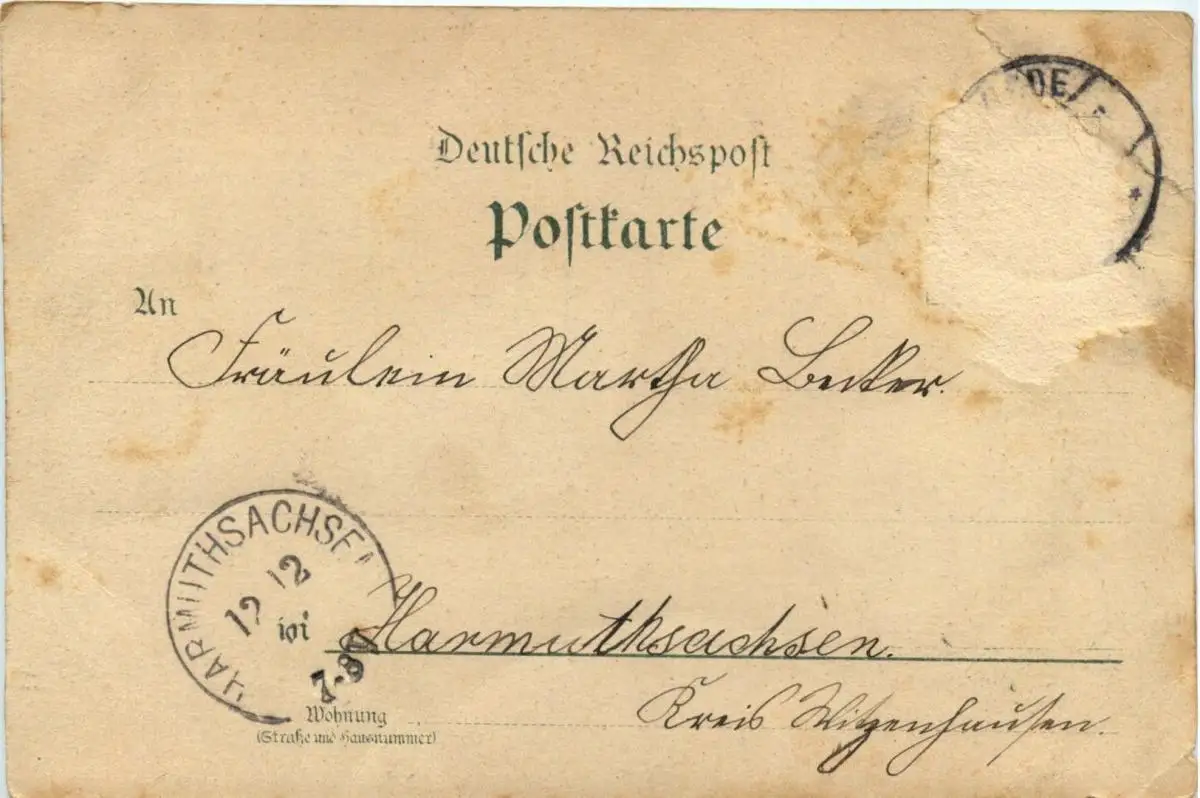 Deutsche Reichspost
Postkarte
An
Fräulein Martha Becker.
HARMUTHSACHSEN
12 12
101
7-8V
Harmuthsachsen.
Kreis Witzenhausen.
Wohnung
(Straße und Hausnummer)